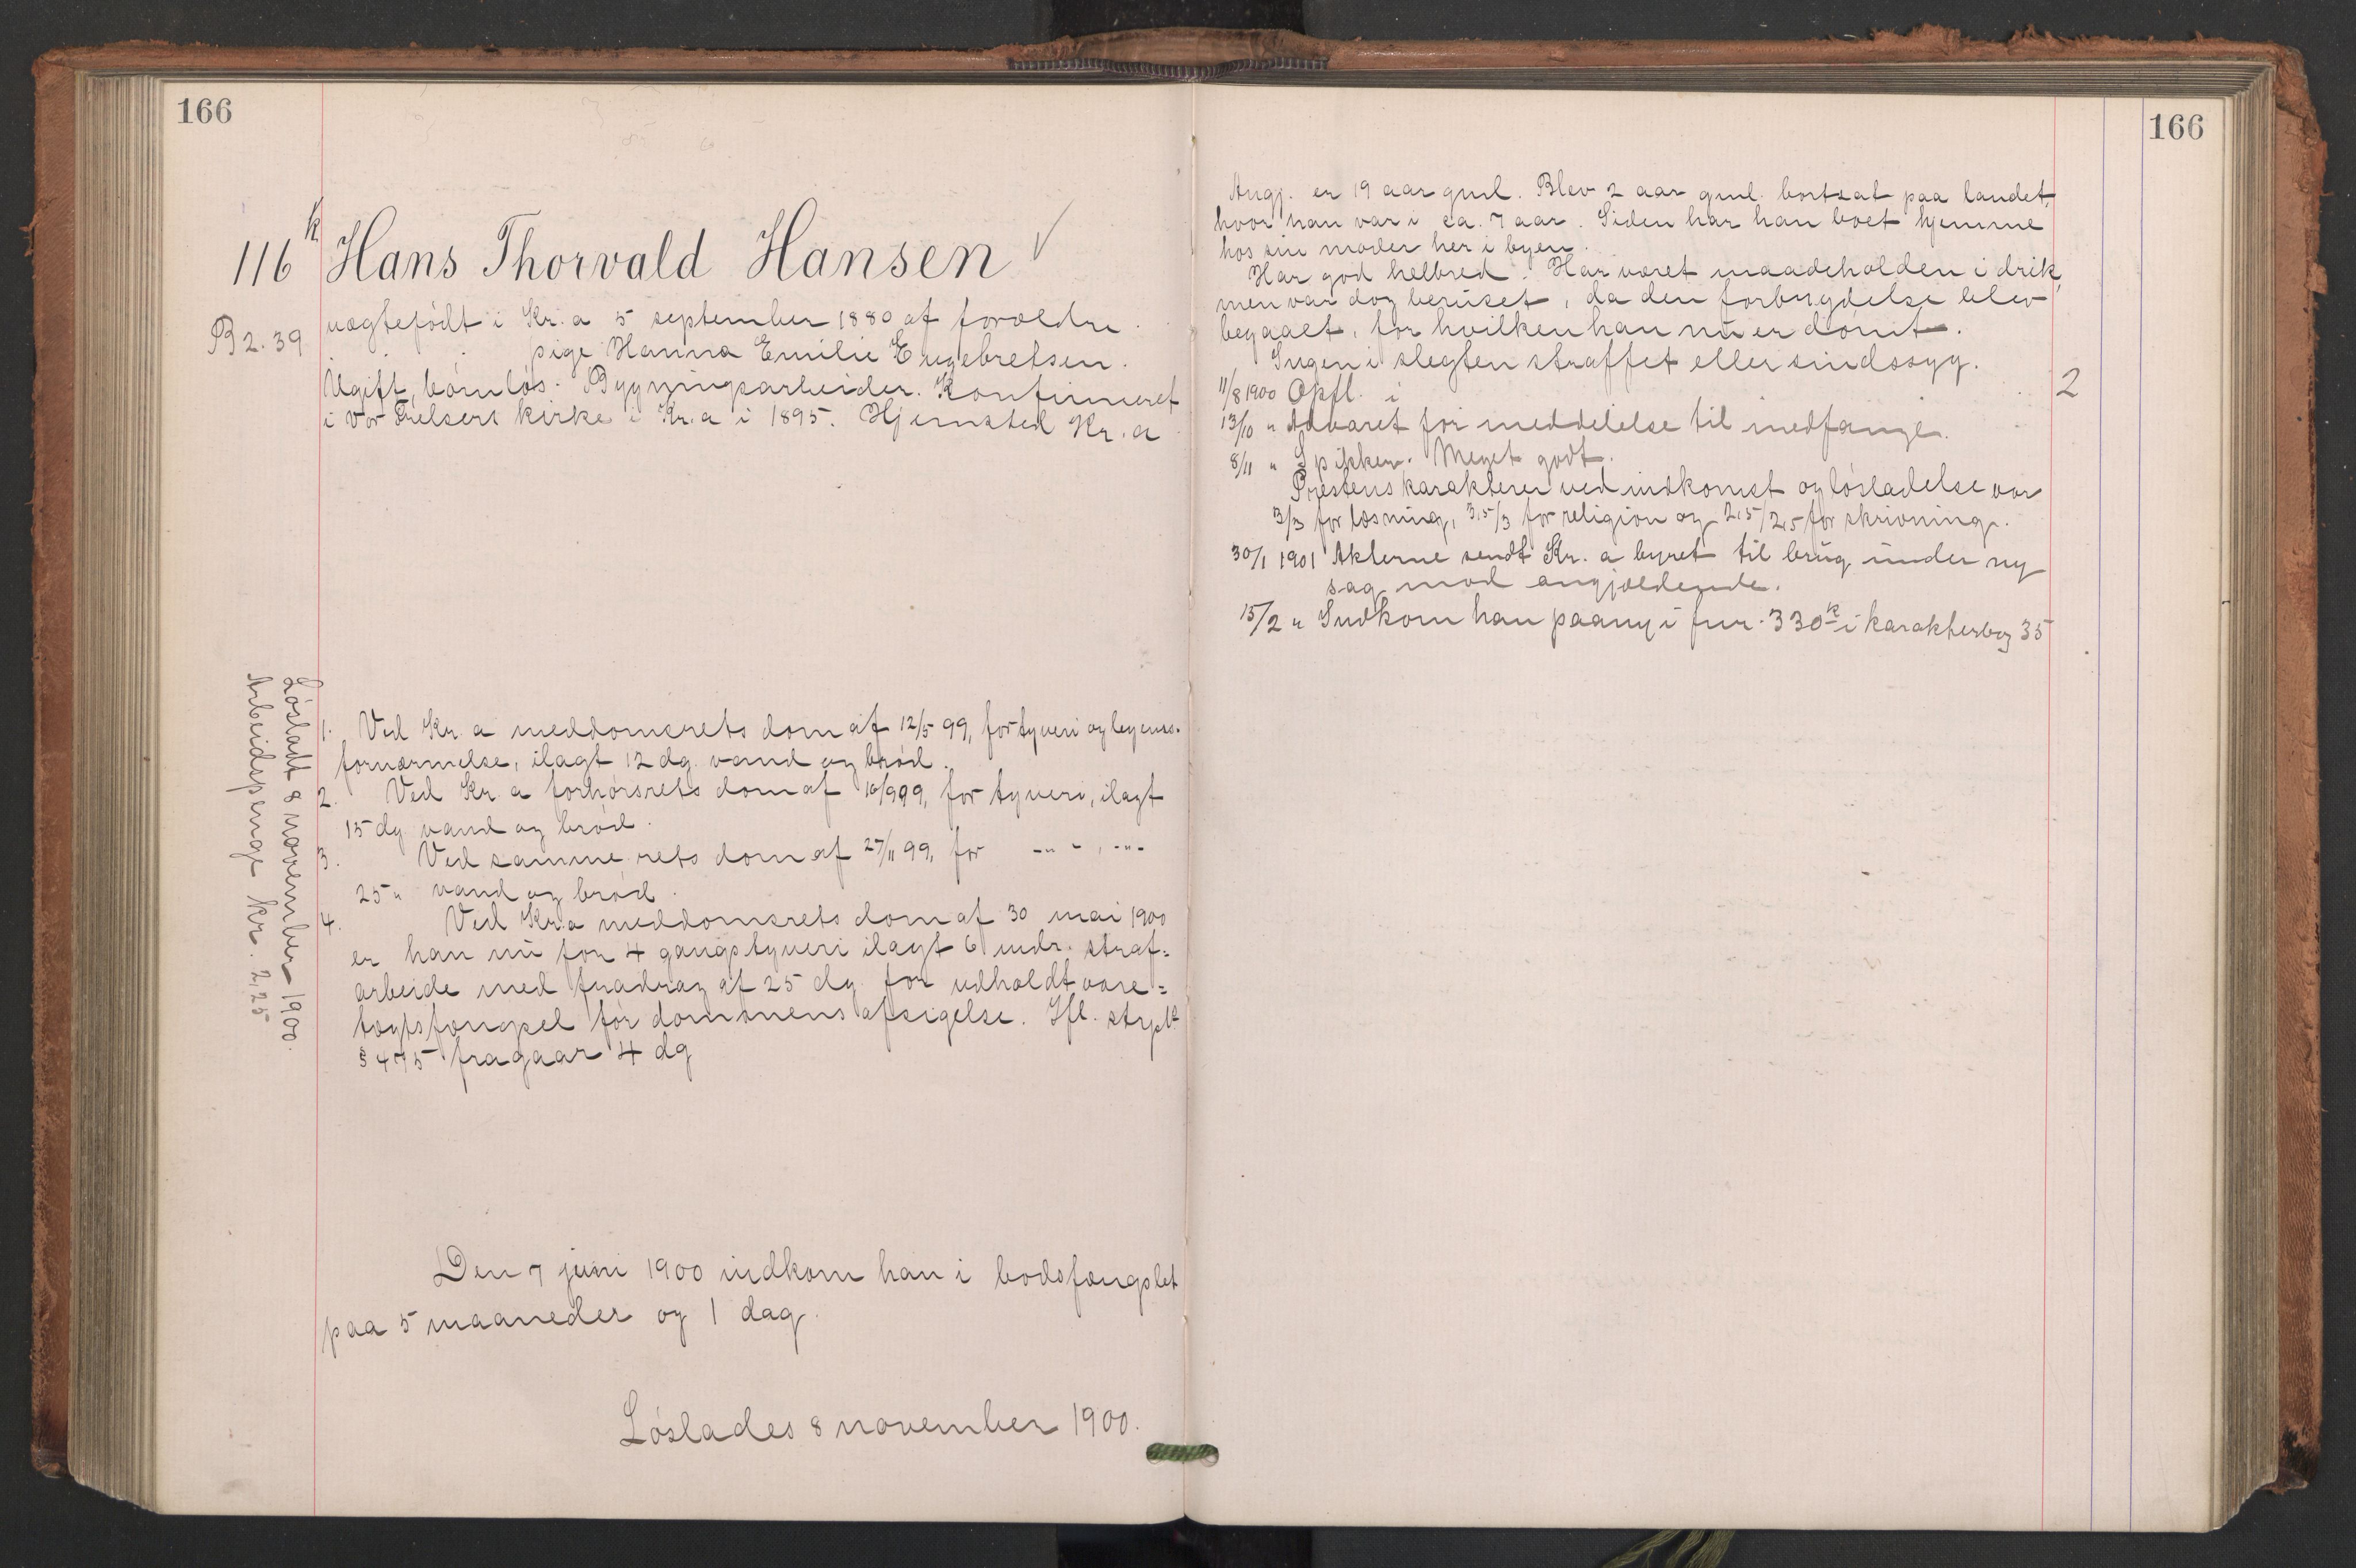 166
116 k Hans Thorvald Hansen ✓
B 2. 39
uægtefødt i Kr.a 5 september 1880 af forældre
pige Hanna Emilie Engebretsen.
Ugift, børnløs. Bygningsarbeider. Konfirmeret
i Vor Frelsers kirke i Kr.a i 1895. Hjemsted Kr.a
Løsladt 8 november 1900.
Arbeidspenge kr. 2,25
1. Ved Kr.a meddomsrets dom af 12/5 99, for tyveri og legems-
fornærmelse, ilagt 12 dg. vand og brød.
2. Ved Kr.a forhørsrets dom af 16/9 99, for tyveri, ilagt
15 dg vand og brød.
3. Ved samme rets dom af 27/11 99, for -"- , -"-
25 " vand og brød.
4. Ved Kr.a meddomsrets dom af 30 mai 1900
er han nu for 4 gangs tyveri ilagt 6 mdr. straf=
arbeide med fradrag af 25 dg for udholdt vare=
tægtsfængsel før dommens afsigelse. Ifl. strpl.
§ 475 fragaar 4 dg
Den 7 juni 1900 indkom han i bodsfængslet
paa 5 maaneder og 1 dag.
Løslades 8 november 1900.
166
Angj. er 19 aar gml. Blev 2 aar gml. bortsat paa landet,
hvor han var i ca. 7 aar. Siden har han boet hjemme
hos sin moder her i byen.
Har god helbred. Har været maadeholden i drik,
men var dog beruset, da den forbrydelse blev
begaaet, for hvilken han nu er dømt.
Ingen i slegten straffet eller sindssyg.
11/8 1900 Opfl. i 2
13/10 " Advaret for meddelelse til medfange.
8/11 " Spikker. Meget godt.
Prestens karakterer ved indkomst og løsladelse var
3/3 for læsning, 3,5/3 for religion og 2,5/2,5 for skrivning.
30/1 1901 Akterne sendt Kr.a byret til brug under ny
sag mod angjældende.
15/2 " Indkom han paany i fnr. 330 k i karakterbog 35